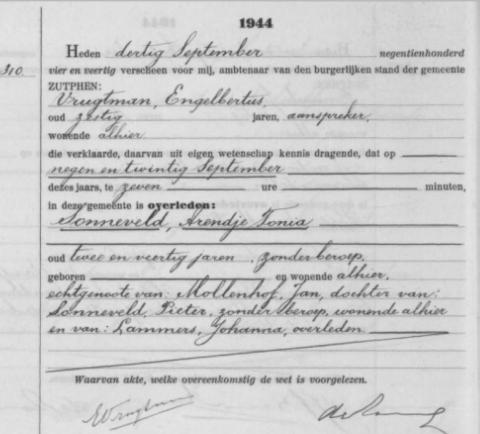 1944
Heden dertig September negentienhonderd
310. vier en veertig verscheen voor mij, ambtenaar van den burgerlijken stand der gemeente
ZUTPHEN:
Vrugtman, Engelbertus,
oud zestig jaren, aanspreker,
wonende alhier
die verklaarde, daarvan uit eigen wetenschap kennis dragende, dat op
negen en twintig September
dezes jaars, te zeven ure minuten,
in deze gemeente is overleden:
Sonneveld, Arendje Tonia
oud twee en veertig jaren, zonder beroep,
geboren en wonende alhier,
echtgenoote van: Mollenhof, Jan, dochter van:
Sonneveld, Pieter, zonder beroep, wonende alhier
en van: Lammers, Johanna, overleden.
Waarvan akte, welke overeenkomstig de wet is voorgelezen.
EVrugtman